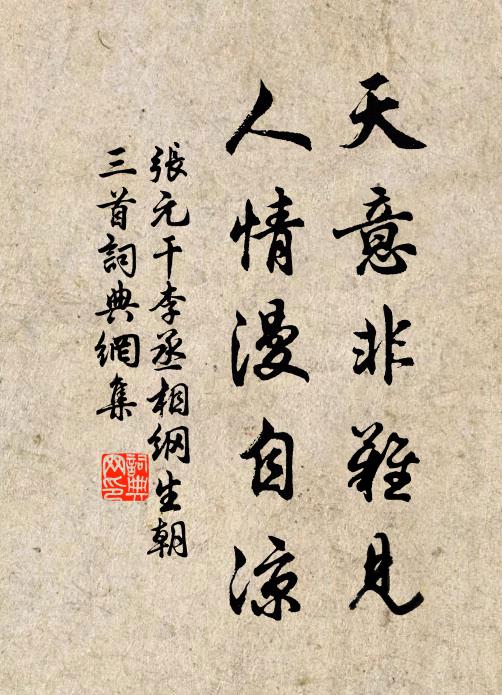 天意非難見
人情漫自涼
張元干李丞相纲生朝
三首詞典網集
詞典網印